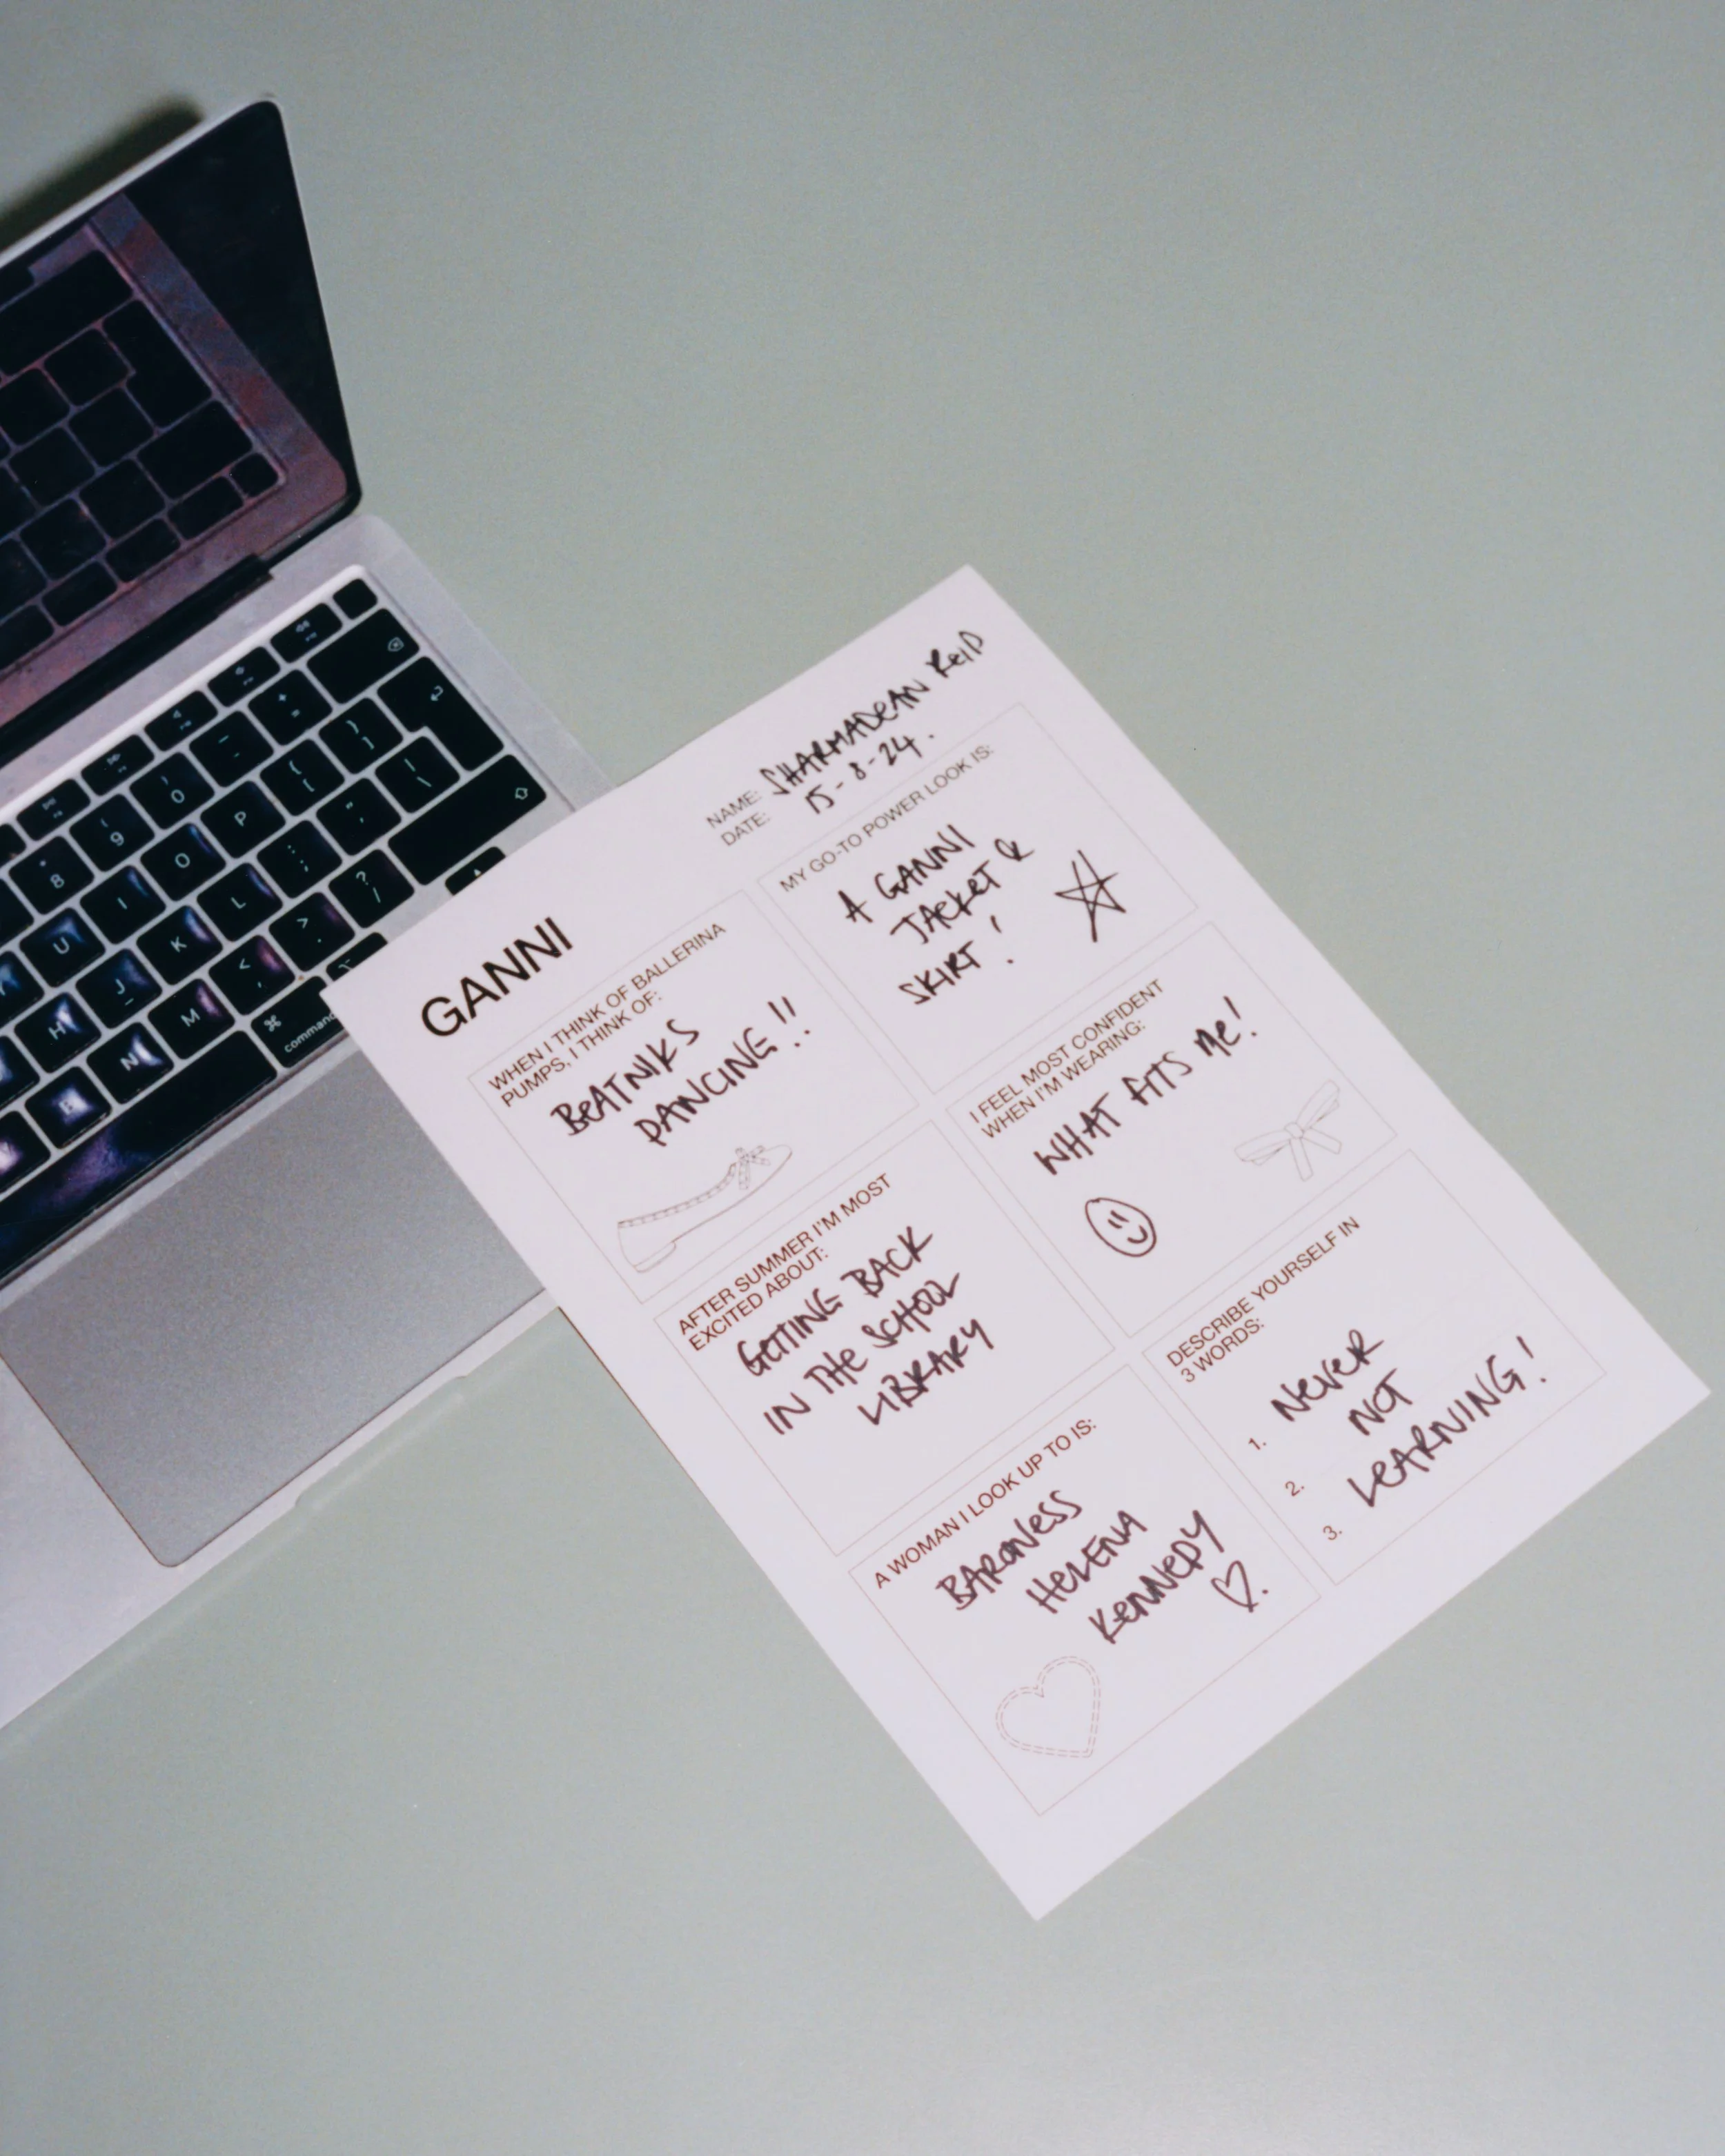 GANNI
NAME: SHARMADEAN REID
DATE: 15-8-24.
WHEN I THINK OF BALLERINA
PUMPS, I THINK OF:
BEATNIKS
DANCING!!
MY GO-TO POWER LOOK IS:
A GANNI
JACKET &
SKIRT!
AFTER SUMMER I'M MOST
EXCITED ABOUT:
GETTING BACK
IN THE SCHOOL
LIBRARY
I FEEL MOST CONFIDENT
WHEN I'M WEARING:
WHAT FITS ME!
A WOMAN I LOOK UP TO IS:
BARONESS
HELENA
KENNEDY
DESCRIBE YOURSELF IN
3 WORDS:
1. NEVER
2. NOT
3. LEARNING!
8
9
0
U
I
O
P
H
J
K
L
B
N
M
command